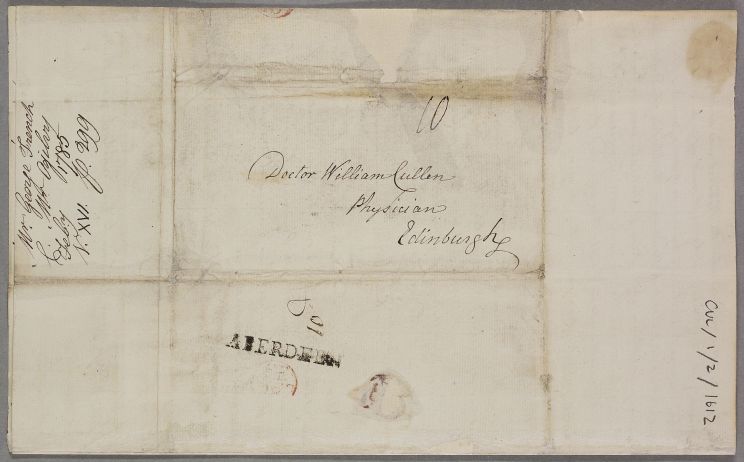 Mr. George French
Mr. Ogilvy
Febry 1785
N. XVI. p. 299
10
Doctor William Cullen
Physician
Edinburgh
10
ABERDEEN
CUL/1/2/1612